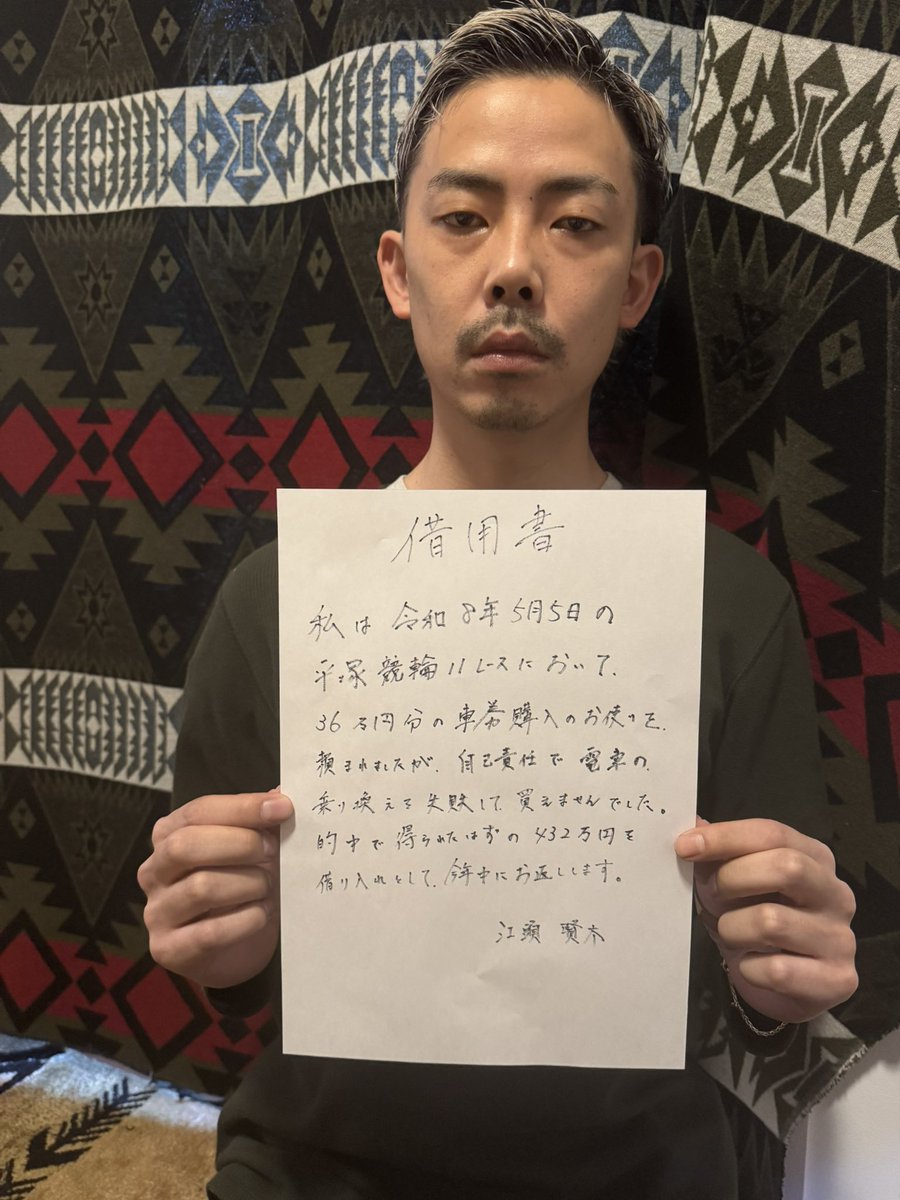 借用書
私は令和8年5月5日の
平塚競輪11レースにおいて、
36万円分の車券購入のお使いを、
頼まれましたが、自己責任で電車の、
乗り換えを失敗して、買えませんでした。
的中で得られたはずの432万円を
借り入れとして、今年中にお返しします。
江頭 賢木